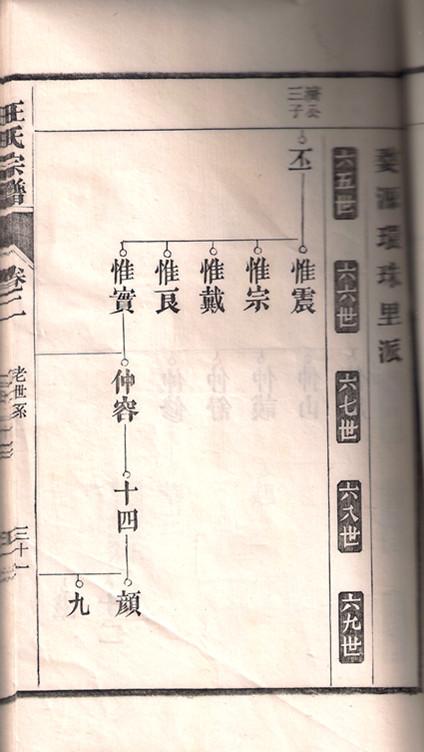 婺源環珠里派
六五世
六六世
六七世
六八世
六九世
三子
丕
惟震
惟宗
惟戴
惟良
惟實
仲容
十四
顔
九
汪氏宗譜
卷二
老世系
三十一